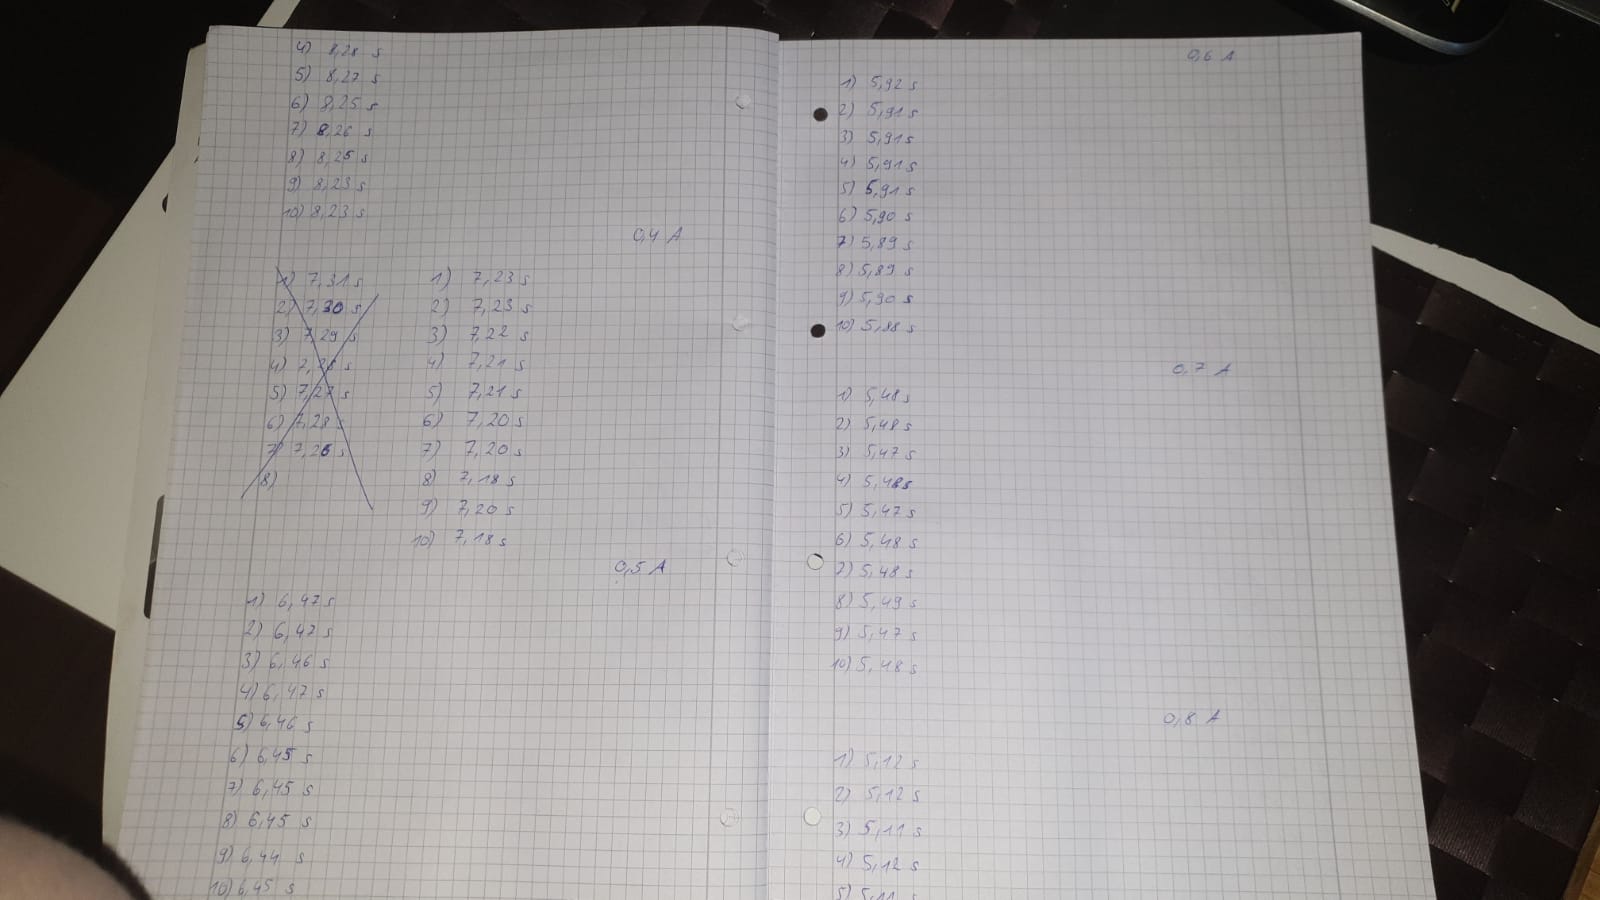 4) 8,28 s
5) 8,27 s
6) 8,25 s
7) 8,26 s
8) 8,25 s
9) 8,23 s
10) 8,23 s
0,4 A
1) 7,31 s
2) 7,30 s
3) 7,29 s
4) 7,28 s
5) 7,27 s
6) 7,28 s
7) 7,26 s
8)
1) 7,23 s
2) 7,23 s
3) 7,22 s
4) 7,21 s
5) 7,21 s
6) 7,20 s
7) 7,20 s
8) 7,18 s
9) 7,20 s
10) 7,18 s
0,5 A
1) 6,47 s
2) 6,47 s
3) 6,46 s
4) 6,47 s
5) 6,46 s
6) 6,45 s
7) 6,45 s
8) 6,45 s
9) 6,44 s
10) 6,45 s
0,6 A
1) 5,92 s
2) 5,91 s
3) 5,91 s
4) 5,91 s
5) 5,91 s
6) 5,90 s
7) 5,89 s
8) 5,89 s
9) 5,90 s
10) 5,88 s
0,7 A
1) 5,48 s
2) 5,48 s
3) 5,47 s
4) 5,48 s
5) 5,47 s
6) 5,48 s
7) 5,48 s
8) 5,49 s
9) 5,47 s
10) 5,48 s
0,8 A
1) 5,12 s
2) 5,12 s
3) 5,11 s
4) 5,12 s
5) 5,11 s